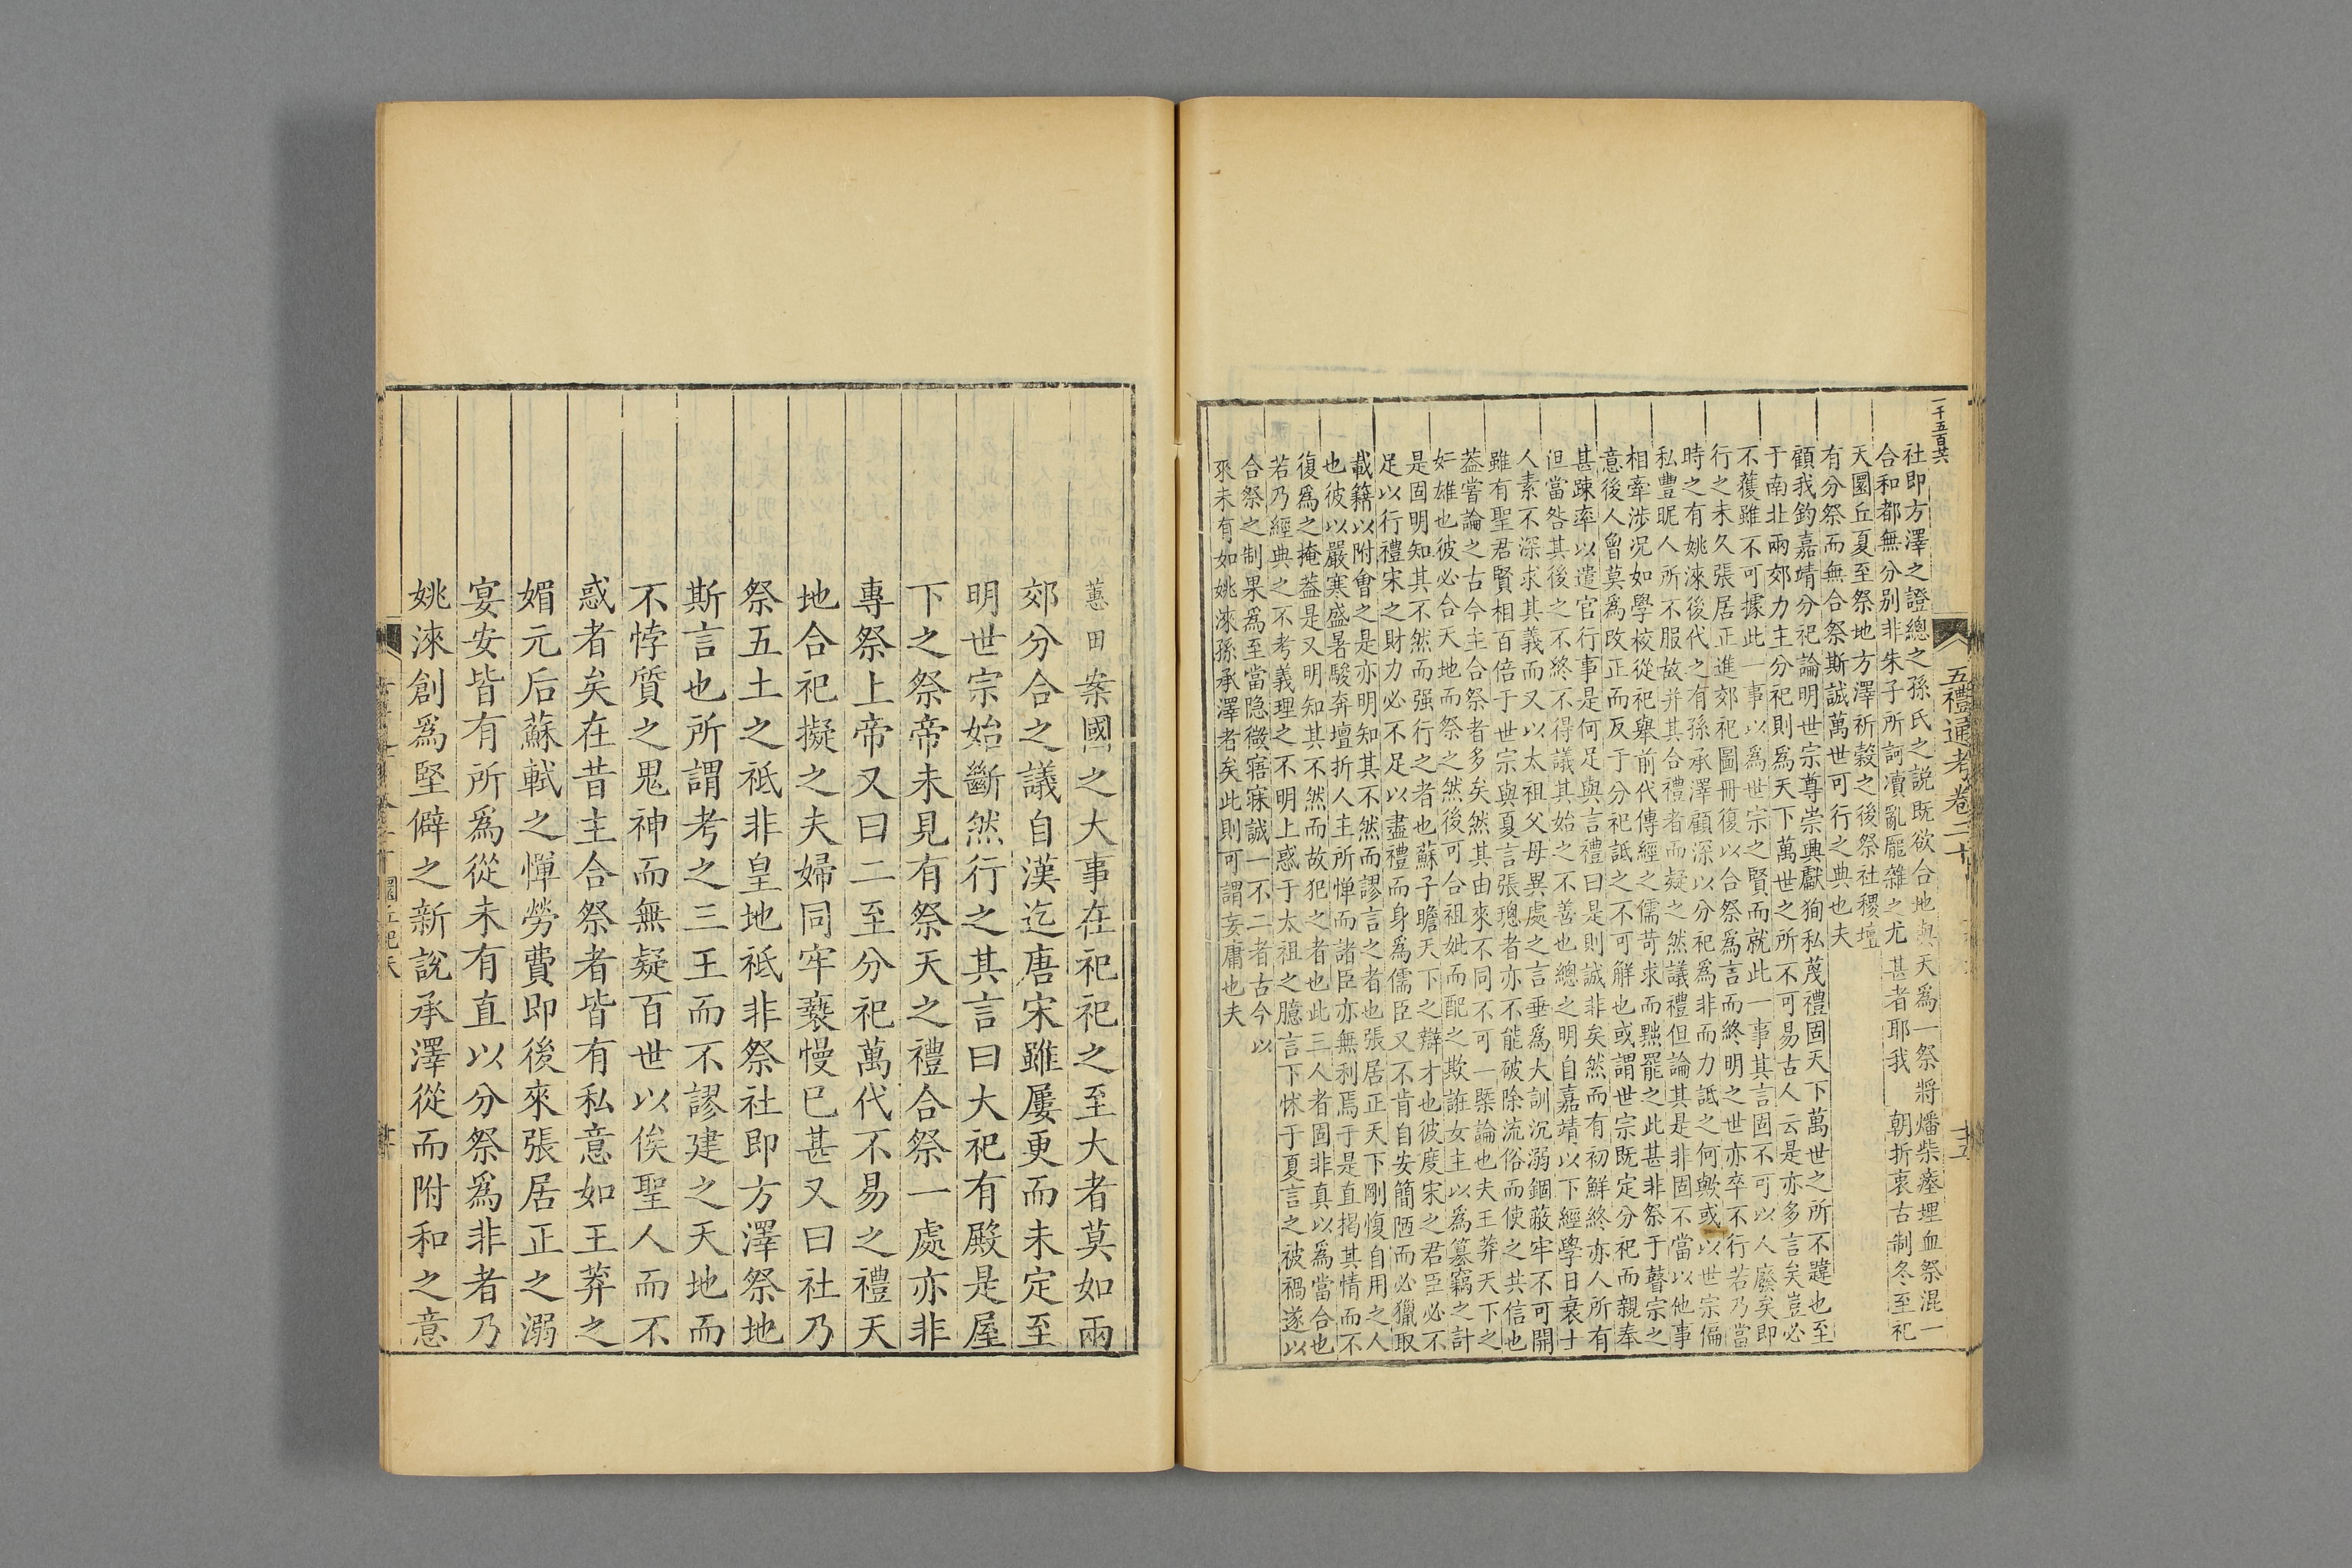 五禮通考卷二十
十五
社即方澤之證總之孫氏之説既欲合地與天爲一祭將燔柴瘞埋血祭混一
合和都無分别非朱子所訶瀆亂龎雜之尤甚者耶我 朝折衷古制冬至祀
天圜丘夏至祭地方澤祈穀之後祭社稷壇
有分祭而無合祭斯誠萬世可行之典也夫
顧我鈞嘉靖分祀論明世宗尊崇興獻狥私蔑禮固天下萬世之所不韙也至
于南北兩郊力主分祀則爲天下萬世之所不可易古人云是亦多言矣豈必
不獲雖不可據此一事以爲世宗之賢而就此一事其言固不可以人廢矣即
行之未久張居正進郊祀圖冊復以合祭爲言而終明之世亦卒不行若乃當
時之有姚淶後代之有孫承澤顧深以分祀爲非而力詆之何歟或以世宗偏
私豐昵人所不服故并其合禮者而疑之然議禮但論其是非固不當以他事
相牽涉况如學校從祀舉前代傳經之儒苛求而黜罷之此甚非祭于瞽宗之
意後人曾莫爲改正而反于分祀詆之不可解也或謂世宗既定分祀而親奉
甚踈率以遣官行事是何足與言禮曰是則誠非矣然而有初鮮終亦人所有
但當咎其後之不終不得議其始之不善也總之明自嘉靖以下經學日衰士
人素不深求其義而又以太祖父母異處之言垂爲大訓沉溺錮蔽牢不可開
雖有聖君賢相百倍于世宗與夏言張璁者亦不能破除流俗而使之共信也
葢嘗論之古今主合祭者多矣然其由來不同不可一槩論也夫王莽天下之
奸雄也彼必合天地而祭之然後可合祖妣而配之欺誑女主以爲篡竊之計
是固明知其不然而强行之者也蘇子瞻天下之辯才也彼度宋之君臣必不
足以行禮宋之財力必不足以盡禮而身爲儒臣又不肯自安簡陋而必獵取
載籍以附會之是亦明知其不然而謬言之者也張居正天下剛愎自用之人
也彼以嚴寒盛暑駿奔壇折人主所憚而諸臣亦無利焉于是直掲其情而不
復爲之掩葢是又明知其不然而故犯之者也此三人者固非真以爲當合也
若乃經典之不考義理之不明上惑于太祖之臆言下怵于夏言之被禍遂以
合祭之制果爲至當隱微寤寐誠一不二者古今以
來未有如姚淶孫承澤者矣此則可謂妄庸也夫
蕙田案國之大事在祀祀之至大者莫如兩
郊分合之議自漢迄唐宋雖屢更而未定至
明世宗始斷然行之其言曰大祀有殿是屋
下之祭帝未見有祭天之禮合祭一處亦非
專祭上帝又曰二至分祀萬代不易之禮天
地合祀擬之夫婦同牢褻慢已甚又曰社乃
祭五土之祇非皇地祇非祭社即方澤祭地
斯言也所謂考之三王而不謬建之天地而
不悖質之鬼神而無疑百世以俟聖人而不
惑者矣在昔主合祭者皆有私意如王莽之
媚元后蘇軾之憚勞費即後來張居正之溺
宴安皆有所爲從未有直以分祭爲非者乃
姚淶創爲堅僻之新說承澤從而附和之意
圜丘祀天